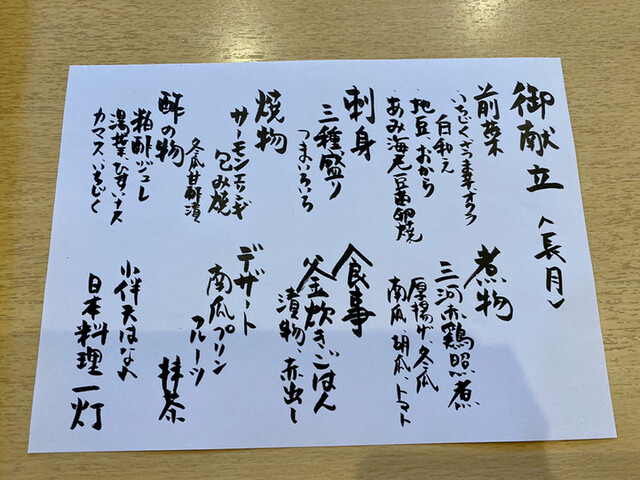 御献立〈長月〉
前菜
いちじく、さつま芋、オクラ
白和え
地豆、おから
あみ海老豆腐卵焼
刺身
三種盛り
つまいろいろ
焼物
サーモンエリンギ
包み焼
冬瓜甘酢漬
酢の物
粕酢ジュレ
湯葉、ひすいナス
カマス、いちじく
煮物
三河赤鶏照煮
厚揚げ、冬瓜
南瓜、胡瓜、トマト
食事
釜炊きごはん
漬物、赤出し
デザート
南瓜プリン
フルーツ
抹茶
小伴天はなれ
日本料理一灯